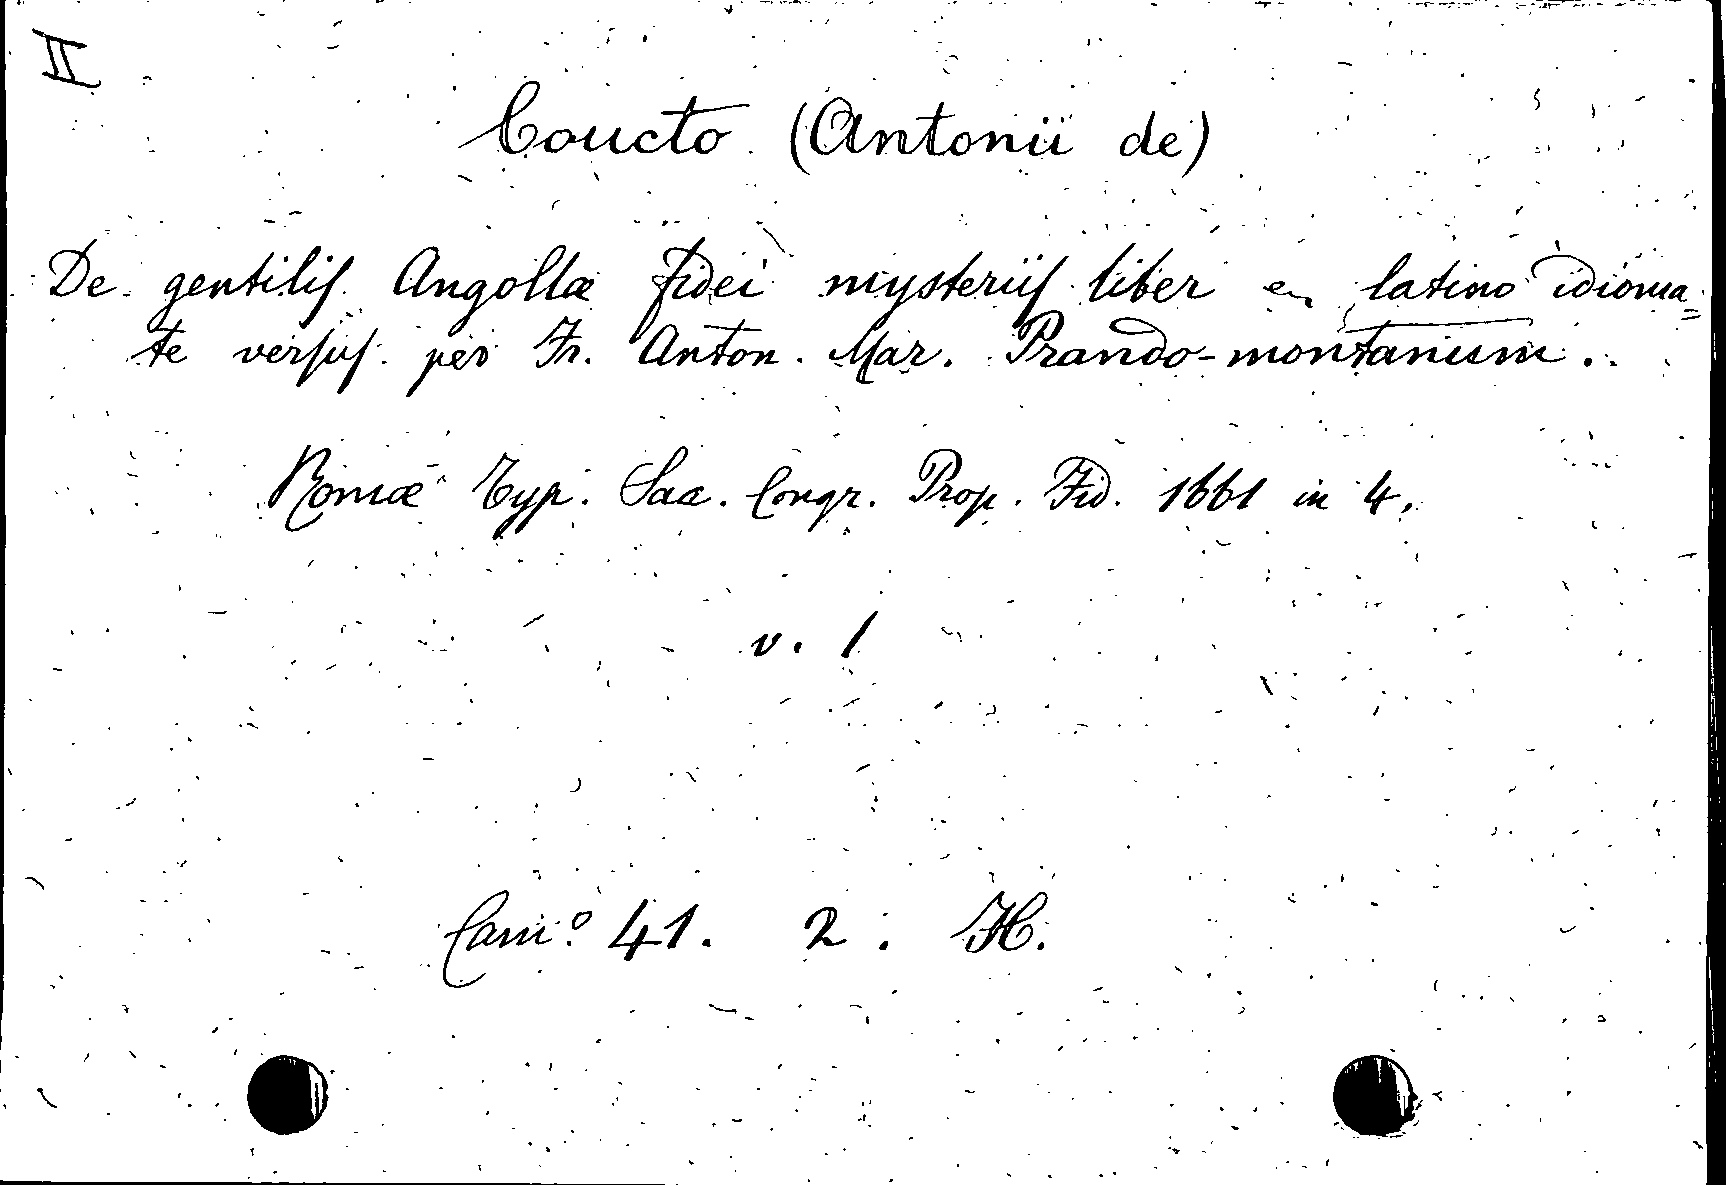 II
Coucto (Antonii de)
De gentilis Angollæ fidei mysteriis liber en latino idioma=
te versus per Fr. Anton. Mar. Prando-montanum.
Romæ Typ. Sac. Congr. Prop. Fid. 1661 in 4.
v. 1
Cam.o 41. 2. H.